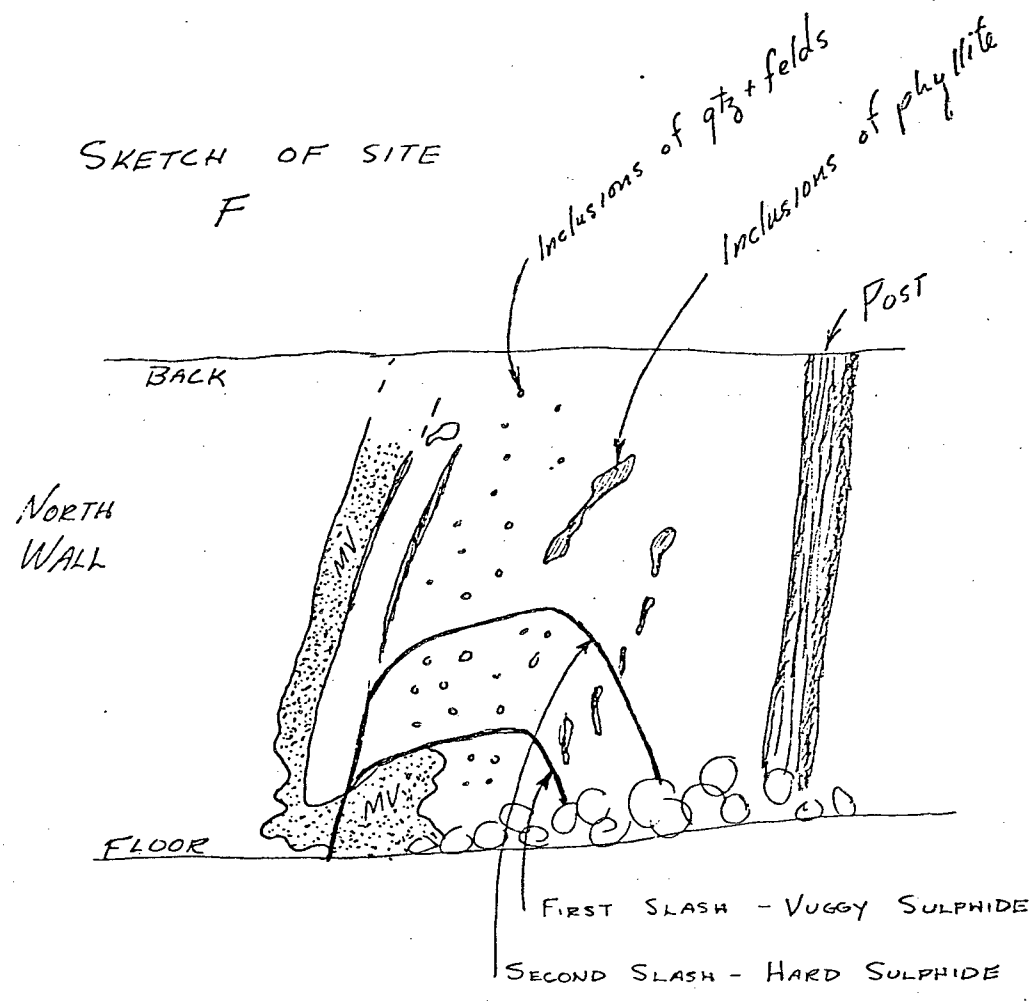 SKETCH OF SITE
F
Inclusions of qtz + felds
Inclusions of phyllite
POST
BACK
NORTH
WALL
MV
MV
FLOOR
FIRST SLASH - VUGGY SULPHIDE
SECOND SLASH - HARD SULPHIDE